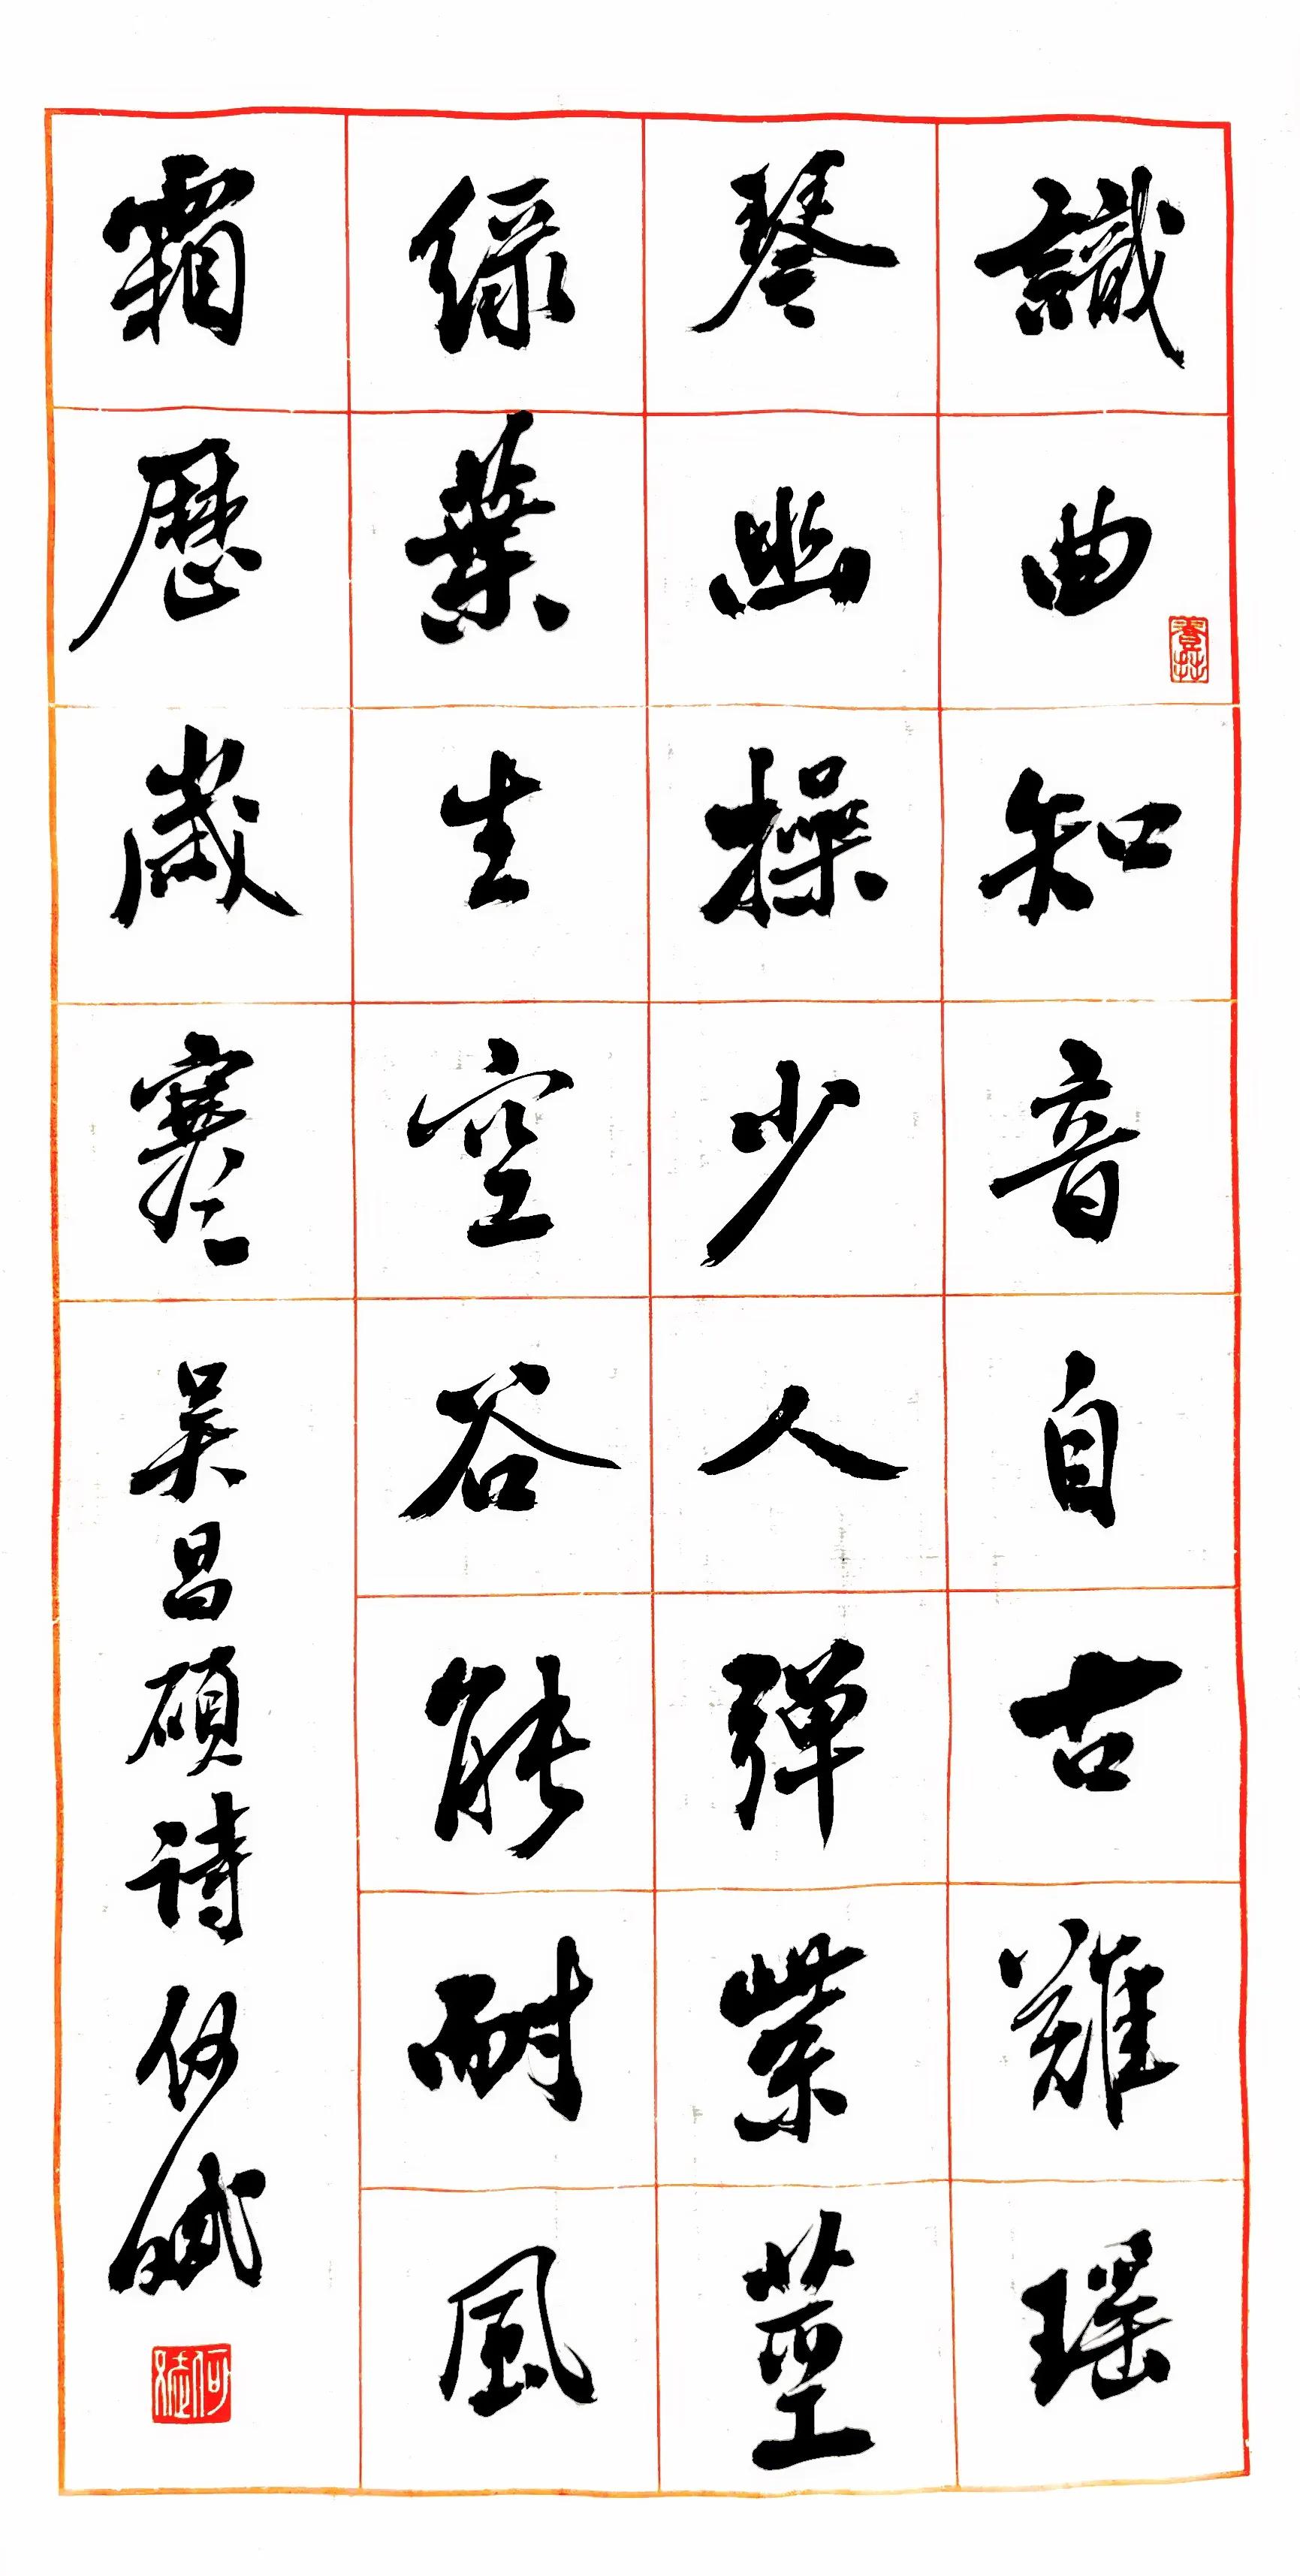 識曲知音自古難瑶
琴幽操少人彈紫莖
緑葉生空谷能耐風
霜歷歲寒吴昌碩诗何斌
養拙
何斌